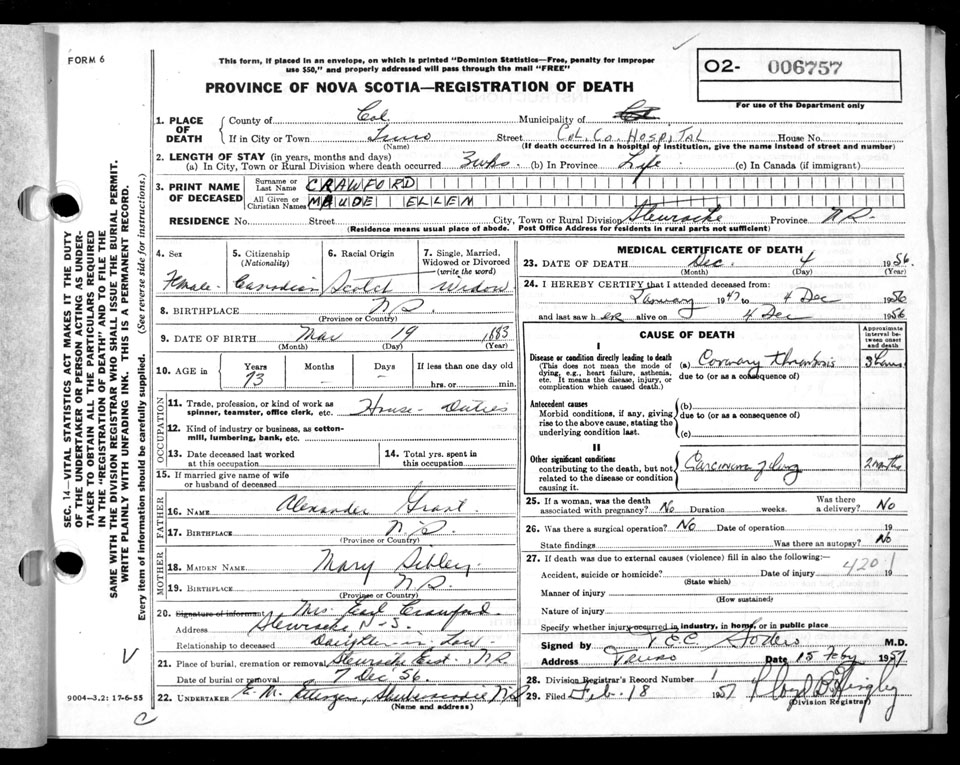 FORM 6
This form, if placed in an envelope, on which is printed "Dominion Statistics—Free, penalty for improper
use $50," and properly addressed will pass through the mail "FREE"
PROVINCE OF NOVA SCOTIA—REGISTRATION OF DEATH
02- 006757
For use of the Department only
1. PLACE OF DEATH
County of Col Municipality of
If in City or Town Truro Street Col. Co. HOSPITAL House No.
(Name) (If death occurred in a hospital or institution, give the name instead of street and number)
2. LENGTH OF STAY (in years, months and days)
(a) In City, Town or Rural Division where death occurred 3 wks. (b) In Province Life (c) In Canada (if immigrant)
3. PRINT NAME OF DECEASED
Surname or Last Name CRAWFORD
All Given or Christian Names MAUDE ELLEN
RESIDENCE No. Street City, Town or Rural Division Stewiacke Province N.S.
(Residence means usual place of abode. Post Office Address for residents in rural parts not sufficient)
4. Sex Female
5. Citizenship (Nationality) Canadian
6. Racial Origin Scotch
7. Single, Married, Widowed or Divorced (write the word) Widow
8. BIRTHPLACE N.S.
(Province or Country)
9. DATE OF BIRTH Mar 19 1883
(Month) (Day) (Year)
10. AGE in Years 73 Months – Days – If less than one day old hrs. or min.
OCCUPATION
11. Trade, profession, or kind of work as spinner, teamster, office clerk, etc. House-Duties
12. Kind of industry or business, as cotton-mill, lumbering, bank, etc.
13. Date deceased last worked at this occupation
14. Total yrs. spent in this occupation
15. If married give name of wife or husband of deceased
FATHER
16. NAME Alexander Grant
17. BIRTHPLACE N.S.
(Province or Country)
MOTHER
18. MAIDEN NAME Mary Sibley
19. BIRTHPLACE N.S.
(Province or Country)
20. Signature of informant Mrs. Earl Crawford
Address Stewiacke N-S.
Relationship to deceased Daughter-in-Law-
21. Place of burial, cremation or removal Stewiacke East, N.S.
Date of burial or removal 7 Dec '56.
22. UNDERTAKER E. M. Shubenacadie N.S.
(Name and address)
MEDICAL CERTIFICATE OF DEATH
23. DATE OF DEATH Dec. 4 1956.
(Month) (Day) (Year)
24. I HEREBY CERTIFY that I attended deceased from:
January 1947 to 4 Dec 1956
and last saw her alive on 4 Dec 1956
CAUSE OF DEATH
Approximate interval between onset and death
I
Disease or condition directly leading to death
(This does not mean the mode of dying, e.g., heart failure, asthenia, etc. It means the disease, injury, or complication which caused death.)
(a) Coronary thrombosis 3 hours
due to (or as a consequence of)
Antecedent causes
Morbid conditions, if any, giving rise to the above cause, stating the underlying condition last.
(b)
due to (or as a consequence of)
(c)
II
Other significant conditions
contributing to the death, but not related to the disease or condition causing it.
Carcinoma of lung 2 months
25. If a woman, was the death associated with pregnancy? No Duration weeks. Was there a delivery? No
26. Was there a surgical operation? No Date of operation 19
State findings Was there an autopsy? No
27. If death was due to external causes (violence) fill in also the following:—
Accident, suicide or homicide? Date of injury 19
4201
(State which)
Manner of injury
(How sustained)
Nature of injury
Specify whether injury occurred in industry, in home, or in public place
Signed by M.D.
Address Truro Date 15 Feby 1957
28. Division Registrar's Record Number 1
29. Filed Feb. 18 1957
(Division Registrar)
SEC. 14—VITAL STATISTICS ACT MAKES IT THE DUTY
OF THE UNDERTAKER OR PERSON ACTING AS UNDER-
TAKER TO OBTAIN ALL THE PARTICULARS REQUIRED
IN THE "REGISTRATION OF DEATH" AND TO FILE THE
SAME WITH THE DIVISION REGISTRAR WHO SHALL ISSUE THE BURIAL PERMIT.
WRITE PLAINLY WITH UNFADING INK. THIS IS A PERMANENT RECORD.
Every item of information should be carefully supplied. (See reverse side for instructions.)
9004-3.2: 17-6-55